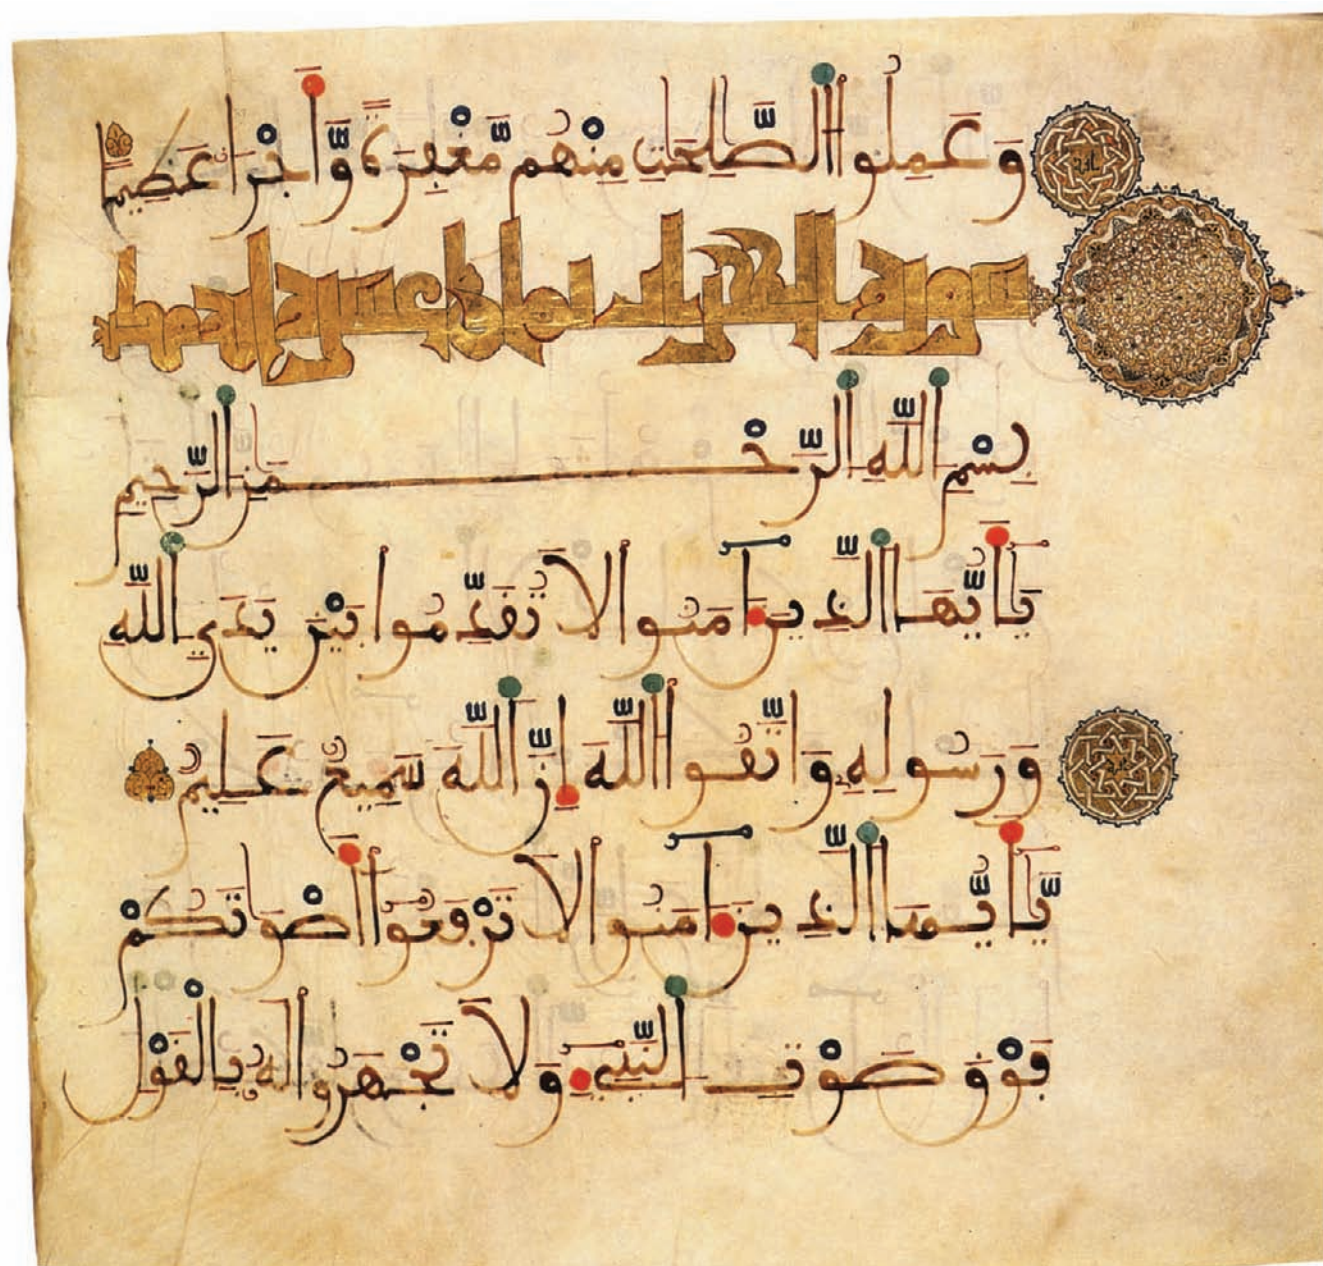 وَعَمِلُوا الصَّٰلِحَٰتِ مِنْهُم مَّغْفِرَةً وَّأَجْرًا عَظِيمًا
سورة الحجرات ثمان عشرة
بِسْمِ اللَّهِ الرَّحْمَٰنِ الرَّحِيمِ
يَٰأَيُّهَا الَّذِينَ ءَامَنُوا لَا تُقَدِّمُوا بَيْنَ يَدَيِ اللَّهِ
وَرَسُولِهِ وَاتَّقُوا اللَّهَ إِنَّ اللَّهَ سَمِيعٌ عَلِيمٌ
يَّٰأَيُّهَا الَّذِينَ ءَامَنُوا لَا تَرْفَعُوا أَصْوَٰتَكُمْ
فَوْقَ صَوْتِ النَّبِيءِ وَلَا تَجْهَرُوا لَهُ بِالْقَوْلِ